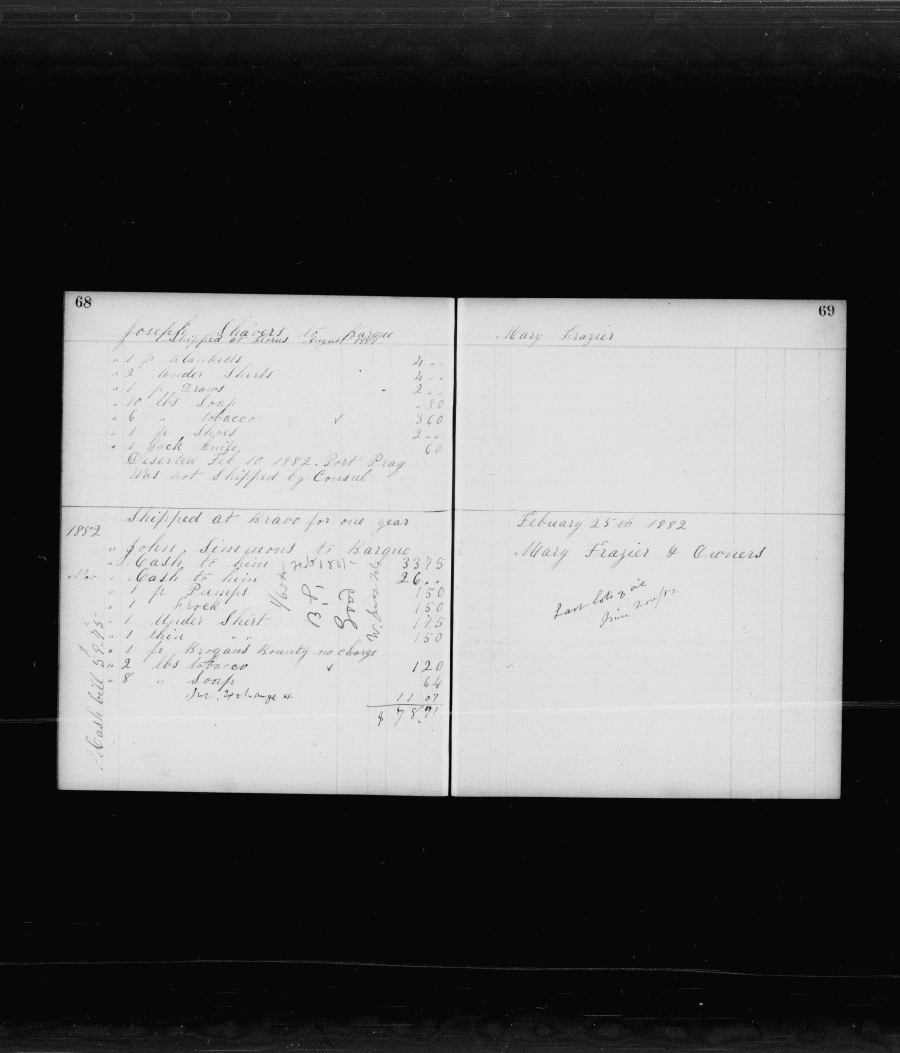 68
Joseph Shavers to Barque
Shipped at Flores August 1881
" 1 pr Blanketts 4 --
" 2 Under Shirts 4 --
" 1 pr Draws 2 --
" 10 lbs Soap " 80
" 6 " tobacco 3 60
" 1 pr Shoes 2 --
" 1 Jack Knife 60
Deserted Feb 10 1882. Port Pray
Was not Shipped by Consul
Shipped at Bravo for one year
1882
" John Simmons to Barque
" Cash to him 33 75
Nov " Cash to him 26 --
" 1 pr Pumps 1 50
" 1 Frock 1 50
" 1 Under Shirt 1 75
" 1 " " 1 50
" 1 pr Brogans Bounty no charge
" 2 lbs tobacco 1 20
" 8 " Soap 64
11 07
$ 78.91
Cash bill 59.75
good
69
Mary Frazier
Febuary 25th 1882
Mary Frazier & Owners